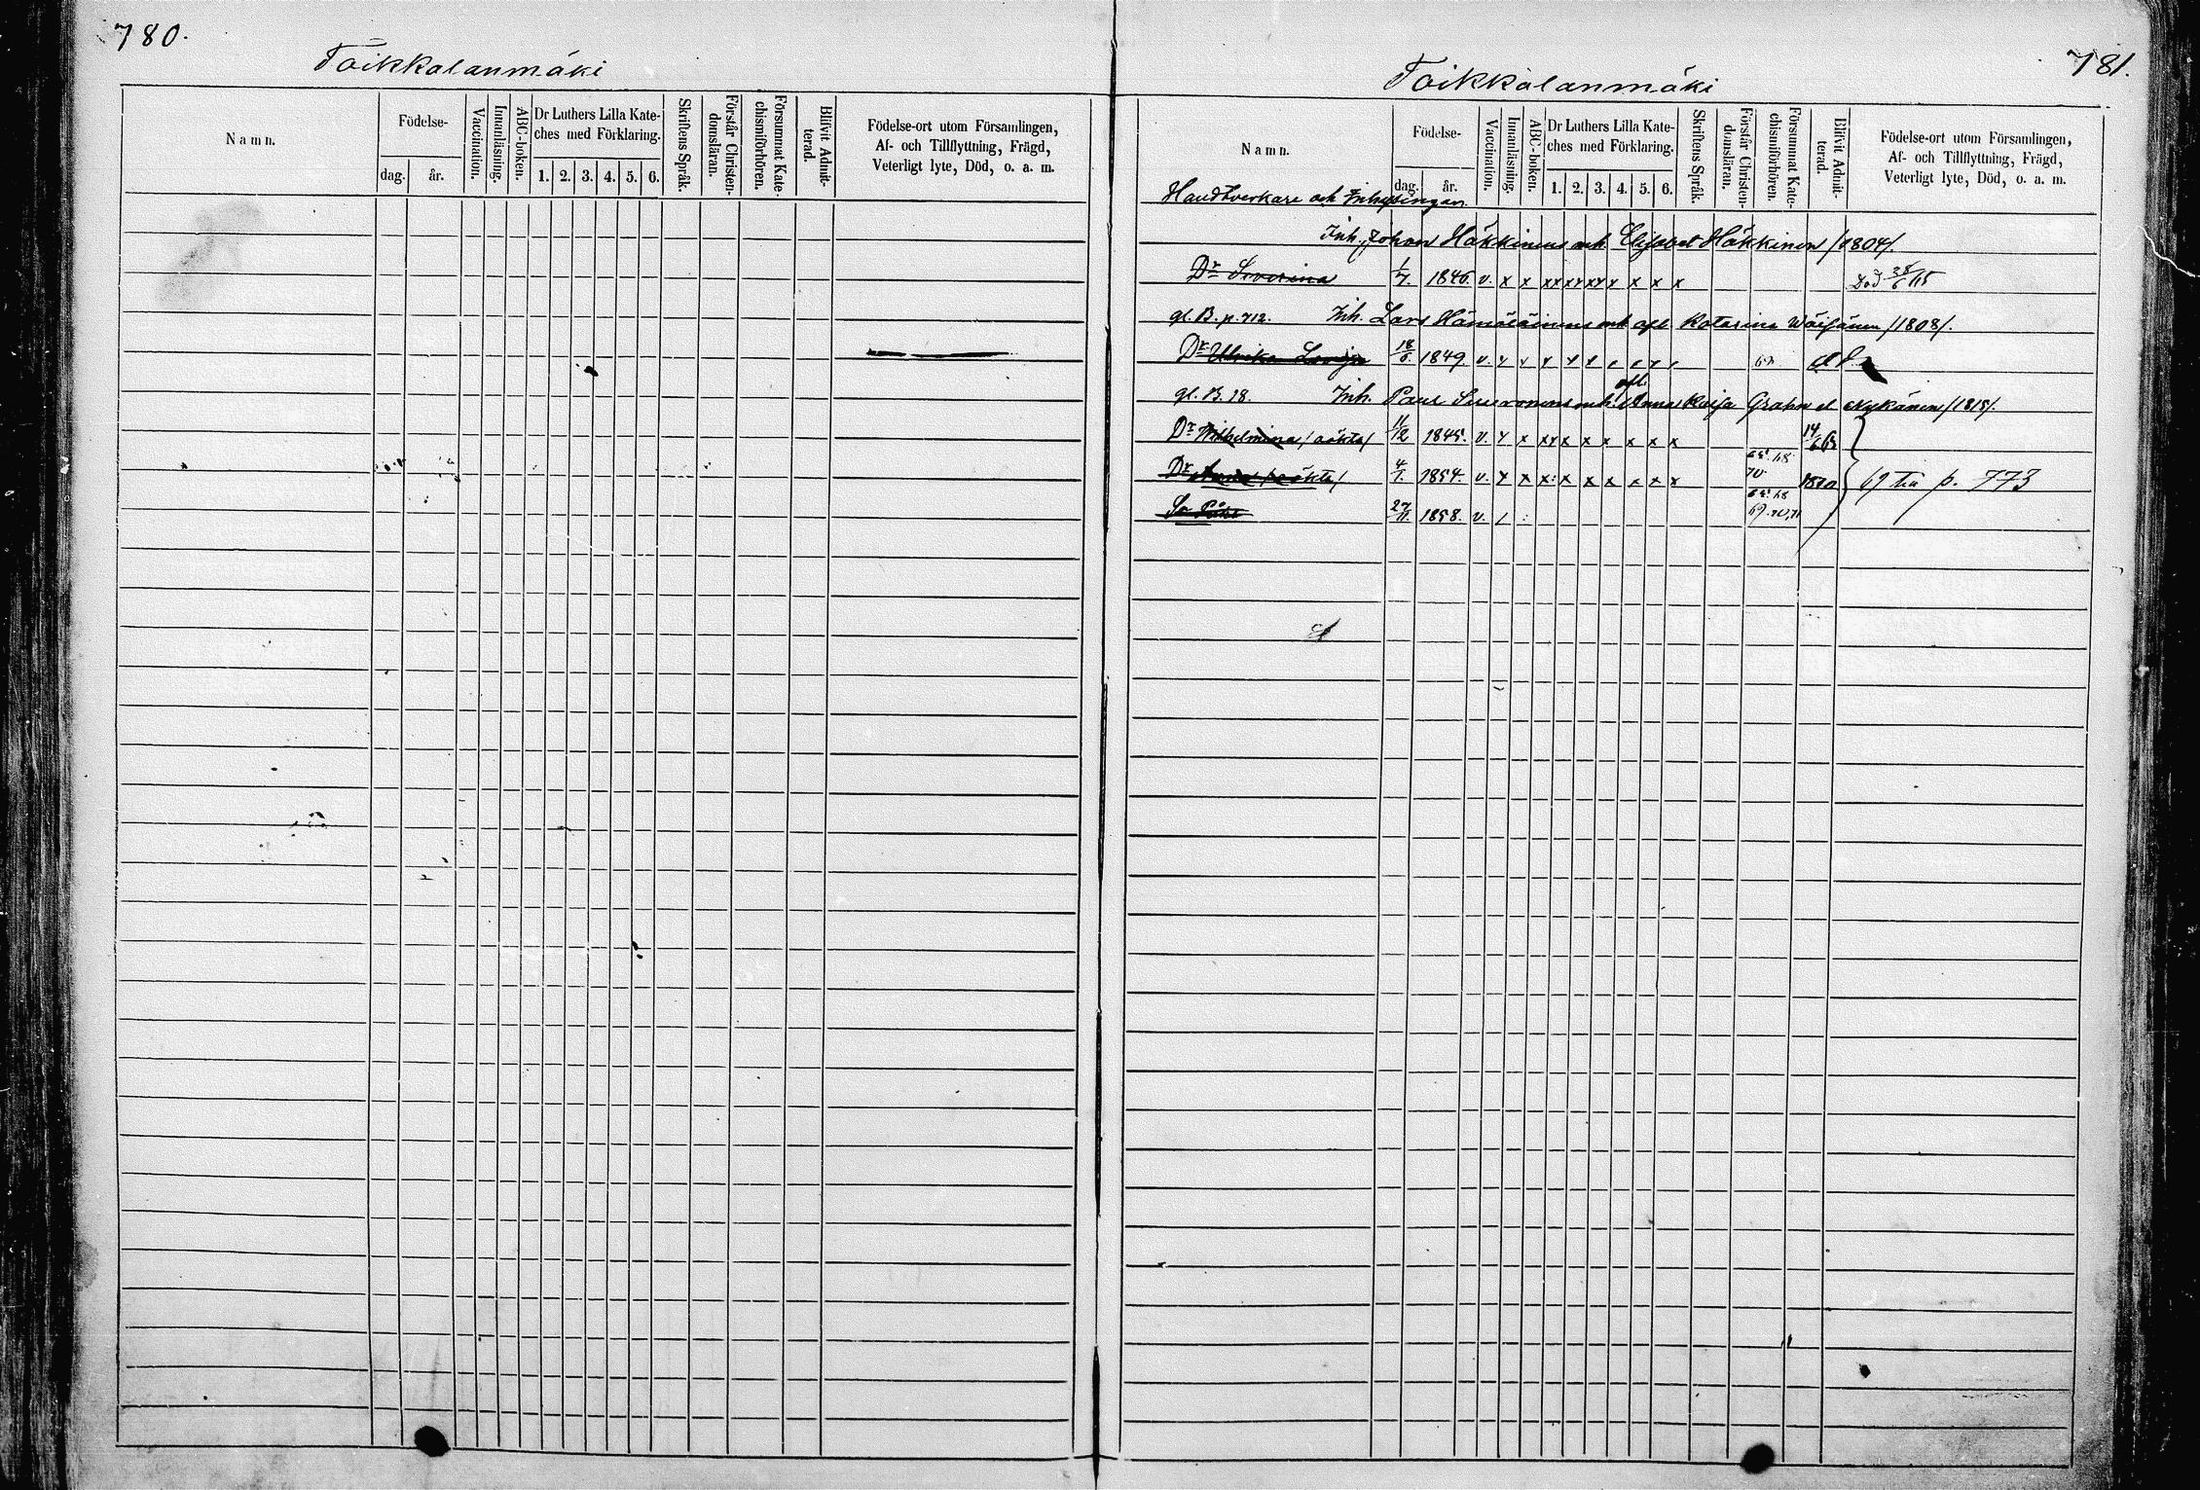 780.
Toikkalanmäki
Namn.
Födelse-
dag.
år.
Vaccination.
Innanläsning.
ABC-boken.
Dr Luthers Lilla Kate-
ches med Förklaring.
1. 2. 3. 4. 5. 6.
Skriftens Språk.
Förstår Christen-
domsläran.
Försummat Kate-
chismiförhören.
Blifvit Admit-
terad.
Födelse-ort utom Församlingen,
Af- och Tillflyttning, Frägd,
Veterligt lyte, Död, o. a. m.
781.
Toikkalanmäki
Namn.
Födelse-
dag.
år.
Vaccination.
Innanläsning.
ABC-boken.
Dr Luthers Lilla Kate-
ches med Förklaring.
1. 2. 3. 4. 5. 6.
Skriftens Språk.
Förstår Christen-
domsläran.
Försummat Kate-
chismiförhören.
Blifvit Admit-
terad.
Födelse-ort utom Församlingen,
Af- och Tillflyttning, Frägd,
Veterligt lyte, Död, o. a. m.
Handtverkare och Inhysingar
Inh. Johan Häkkinens och Elisabet Häkkinen /1804/.
Dr Severina 1/7. 1846. v. x x xx xx xx x x x x Död
gl. B. p. 712. Inh. Lars Hämäläinens och afl Katarina Wäisänen /1808/.
Dr Ulrika Lovisa 18/6. 1849. v.
gl. B. 28. Inh. Paul Suuronens och afl. Anna Kaisa Grahn el Nykänen /1818/.
Dr Wilhelmina /oäkta/ 11/12 1845. v. x x xx x x x x x x 14/6 65
Dr Anna /oäkta/ 4/1. 1854. v. x x x x x x x x x 70. 1870 69 till p. 773
So Påhl 27/11. 1858. v. / 69. 70, 71